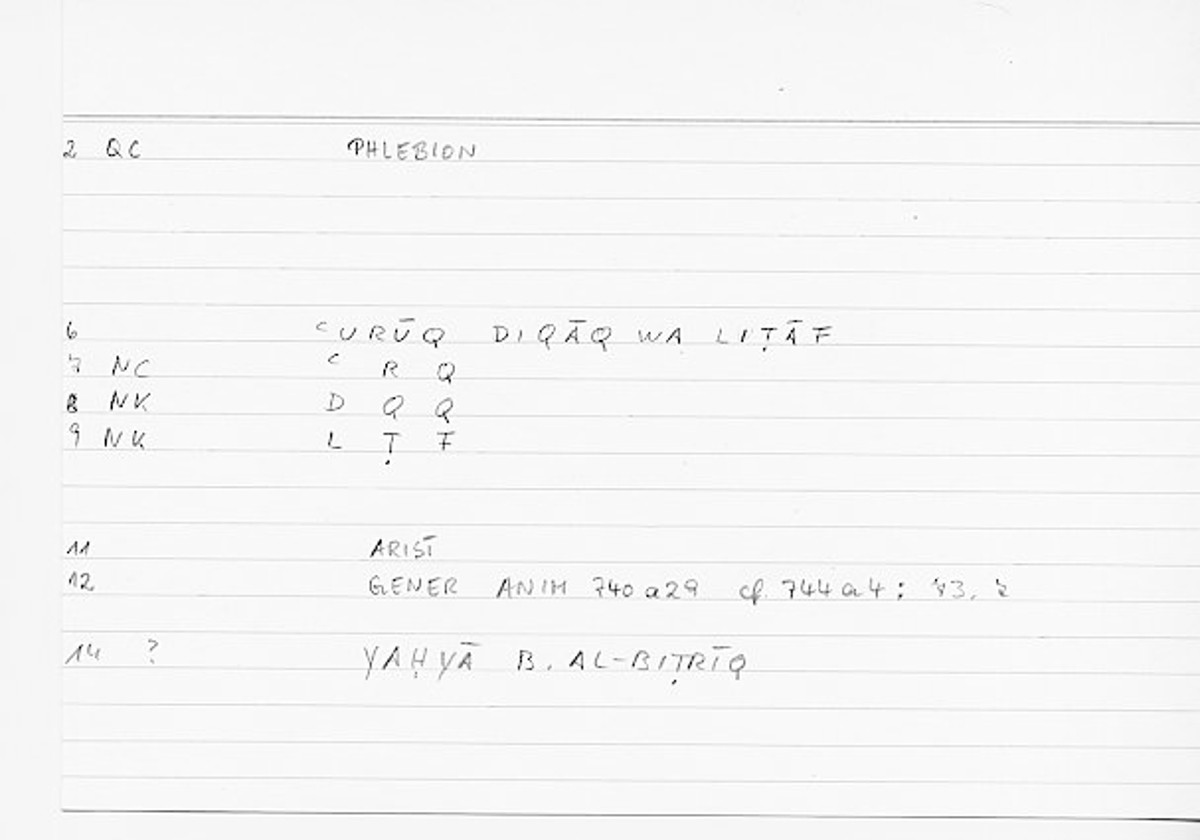 2 QC PHLEBION
6 ᶜURŪQ DIQĀQ WA LIṬĀF
7 NC ᶜ R Q
8 NK D Q Q
9 NK L Ṭ F
11 ARISṬ
12 GENER ANIM 740a29 cf. 744a4; 73, 7
14 ? YAḤYĀ B. AL-BIṬRĪQ